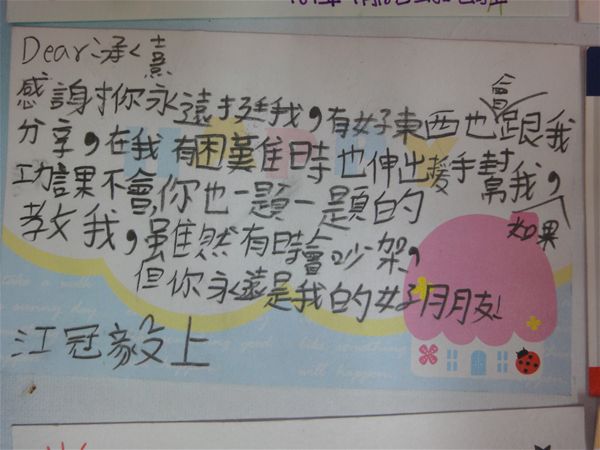 Dear承熹
感謝你永遠挺我，有好東西也會跟我
分享，在我有困難時也伸出援手幫我，如果
功課不會，你也一題一題的
教我，雖然有時會吵架，
但你永遠是我的好朋友！
江冠毅上